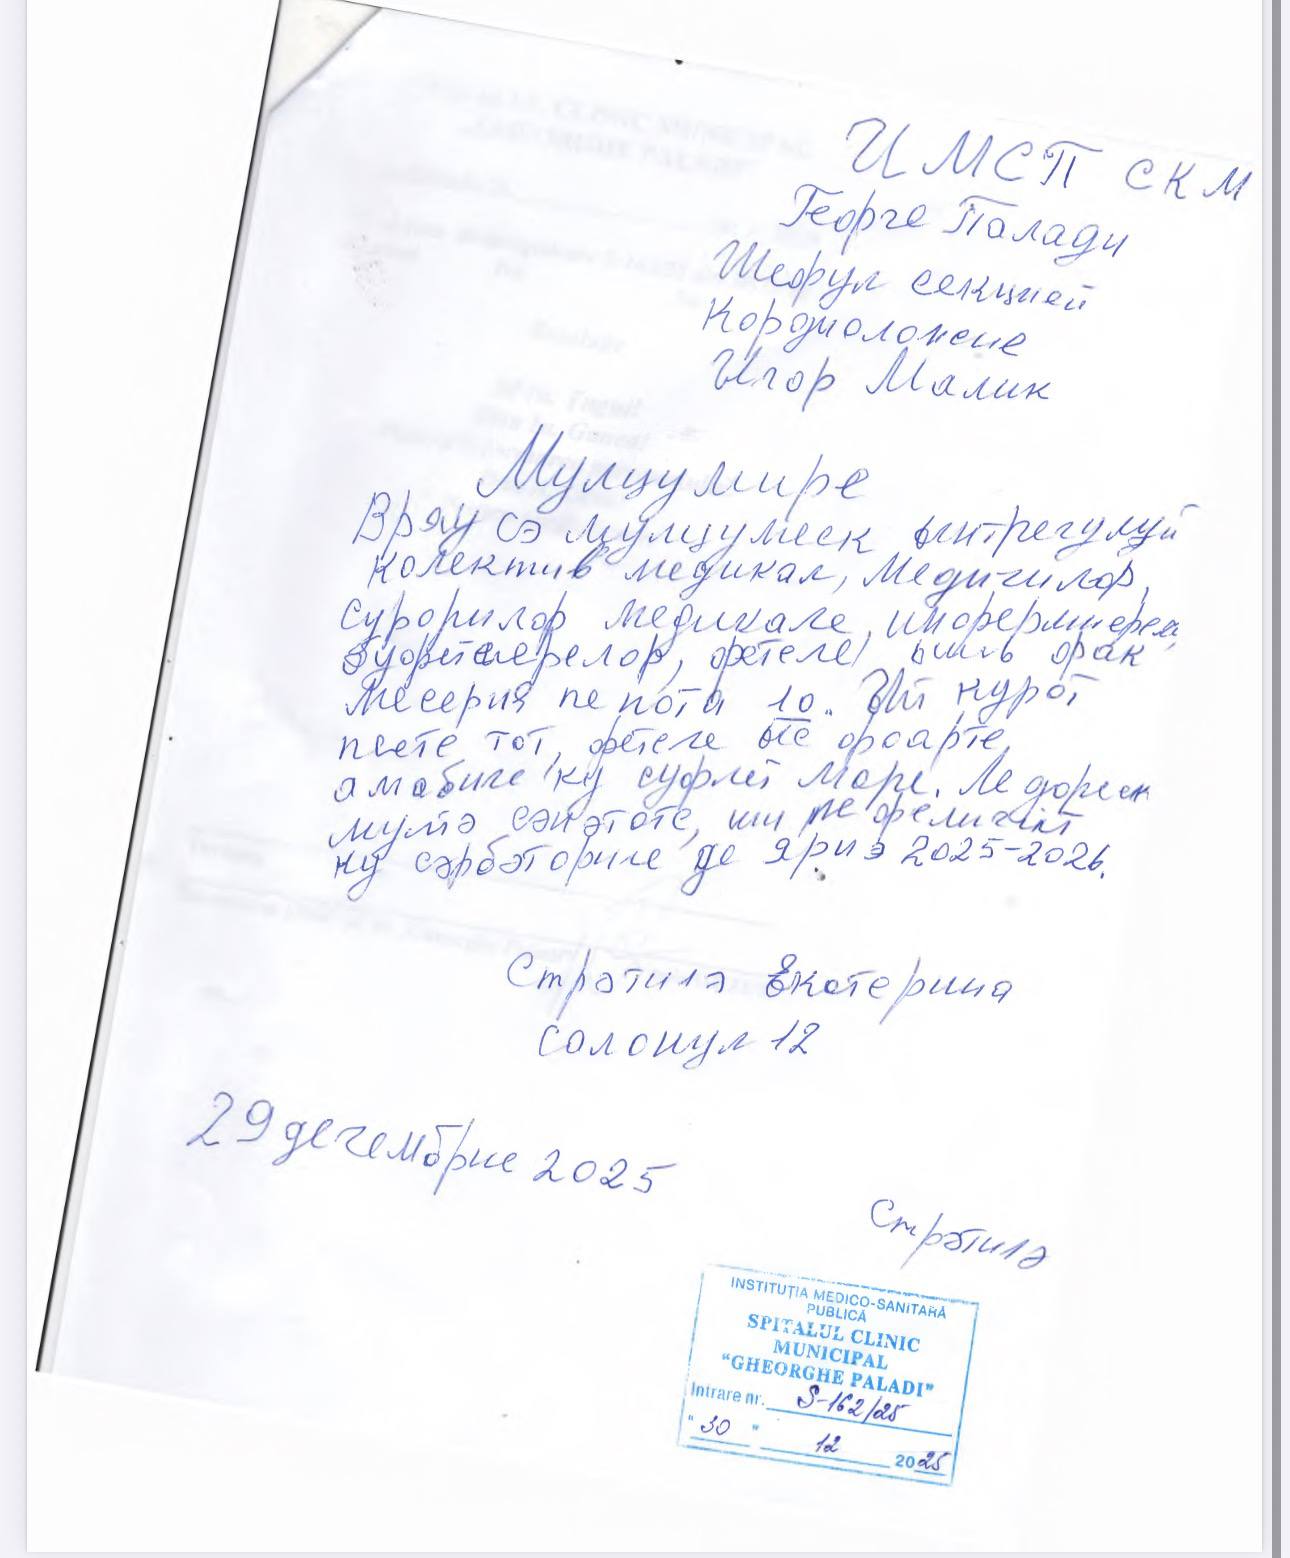 ИМСП СКМ
Георге Палади
Шефул секцией
Кордиоложие
Игор Малик
Мулцумире
Вряу сэ мулцумеск ынтрегулуй
колектив медикал, Медичилор,
сурорилор медикале,
фетеле ышь фак
Месерия пе нота 10. Ын курат
песте тот, фетеле фоарте
амабиле ку суфлет маре. Ле дореск
мултэ сэнэтоте, ши
ку сэрбэториле де ярнэ 2025-2026.
Стрэтилэ Екотерина
солонул 12
29 дечембрие 2025
Стрэтилэ
INSTITUȚIA MEDICO-SANITARĂ
PUBLICĂ
SPITALUL CLINIC
MUNICIPAL
"GHEORGHE PALADI"
Intrare nr. S-162/25
"30" 12 2025